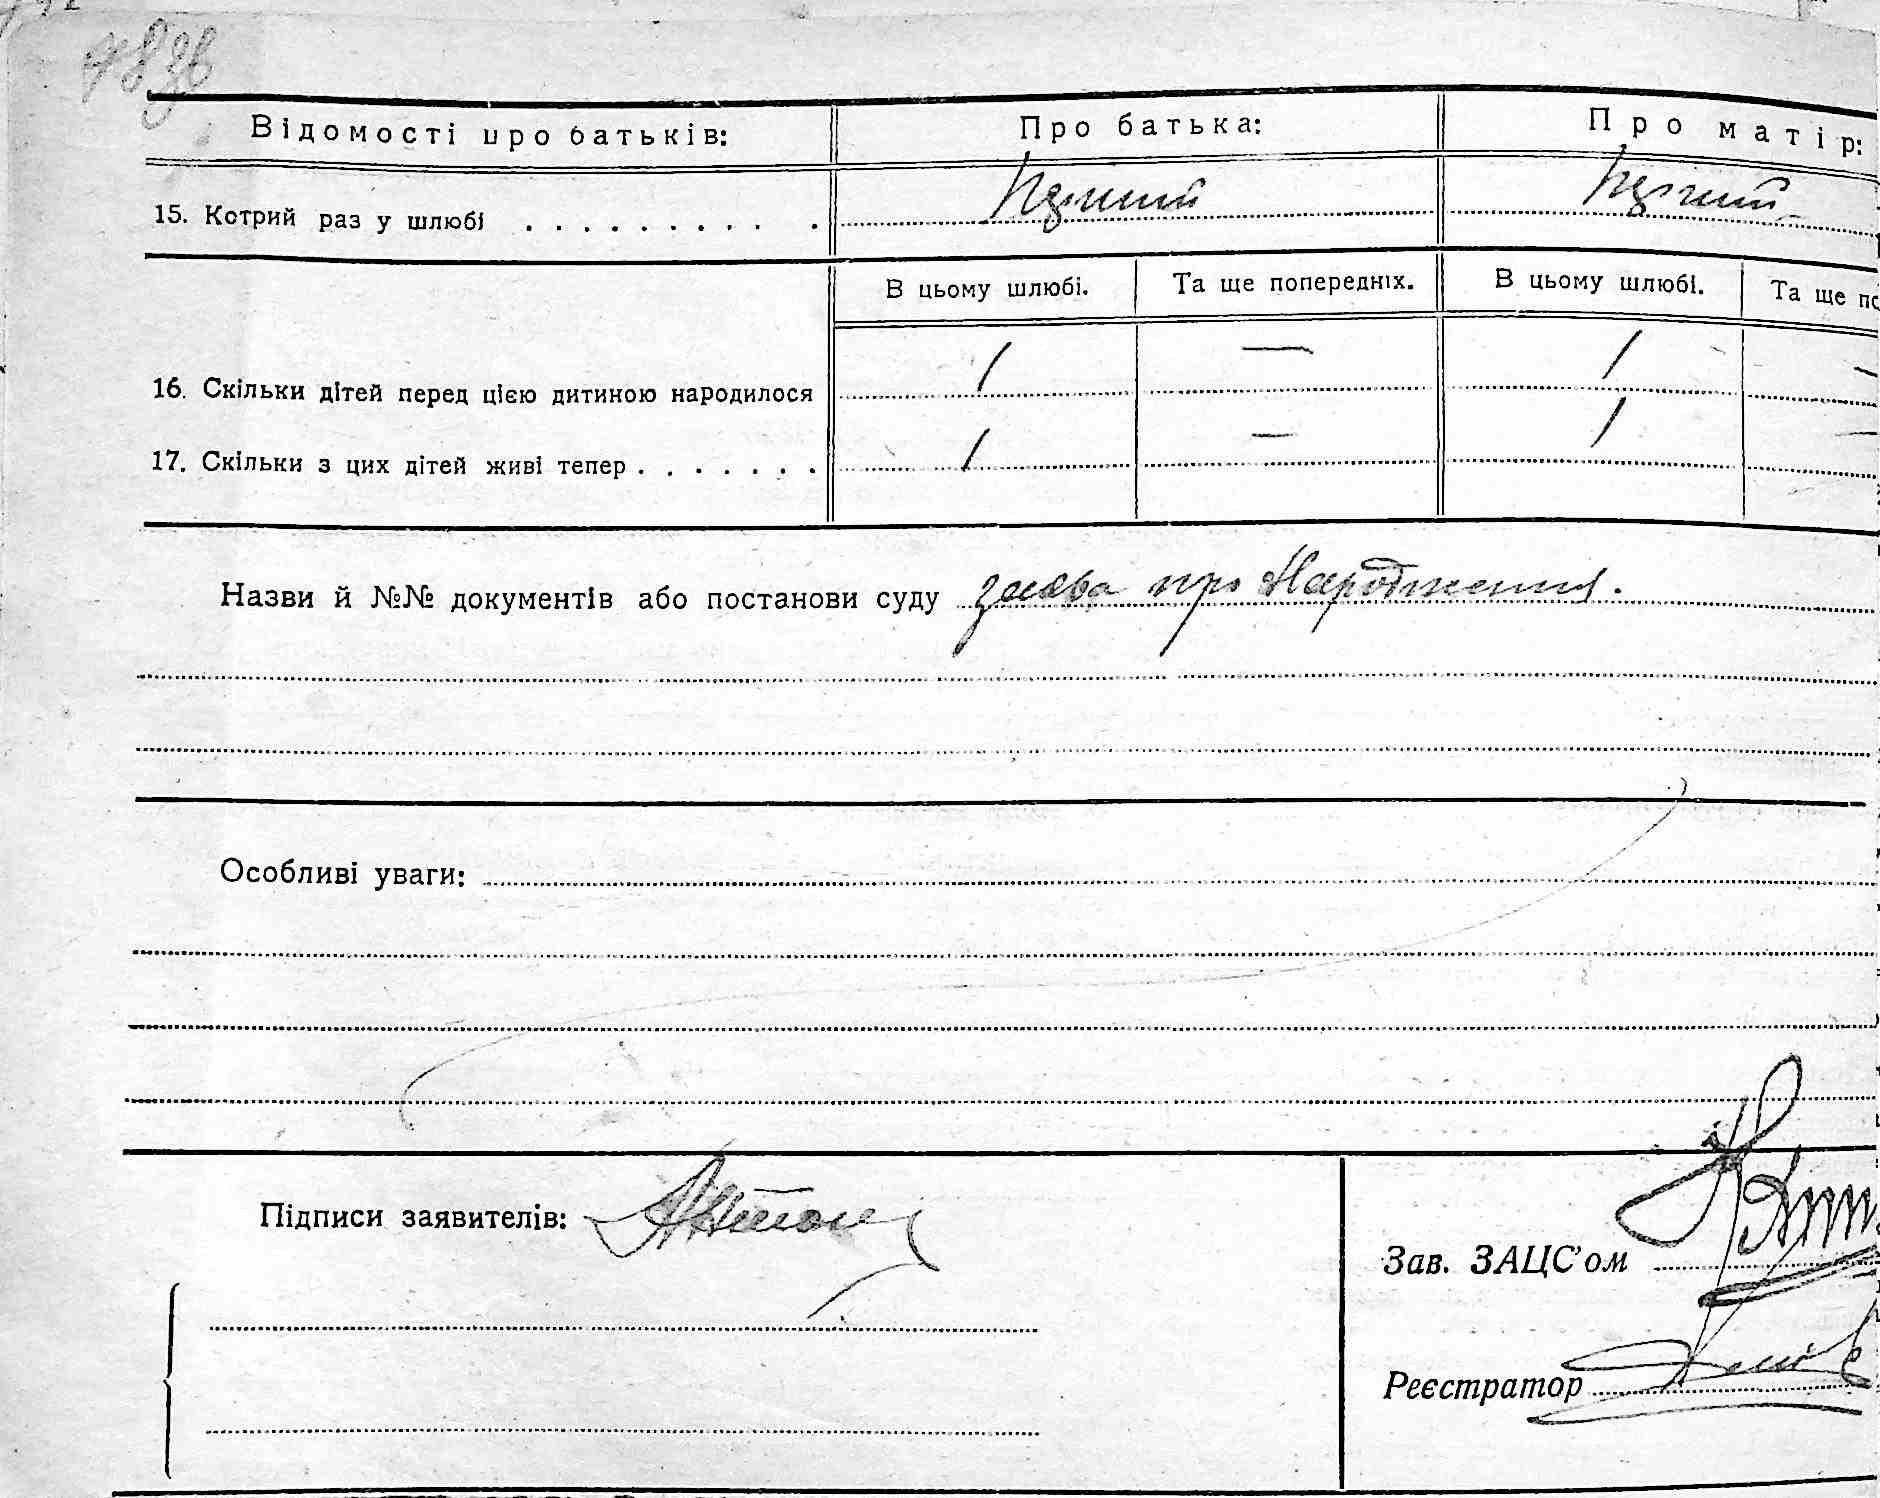 Відомості про батьків: Про батька: Про матір:
15. Котрий раз у шлюбі . . . . . . . . . . Перший Перший
В цьому шлюбі. Та ще попередніх. В цьому шлюбі. Та ще по
16. Скільки дітей перед цією дитиною народилося 1 — 1 —
17. Скільки з цих дітей живі тепер . . . . . . . 1 — 1 —
Назви й №№ документів або постанови суду заява про Народження.
Особливі уваги:
Підписи заявителів:
Зав. ЗАЦС'ом
Реєстратор